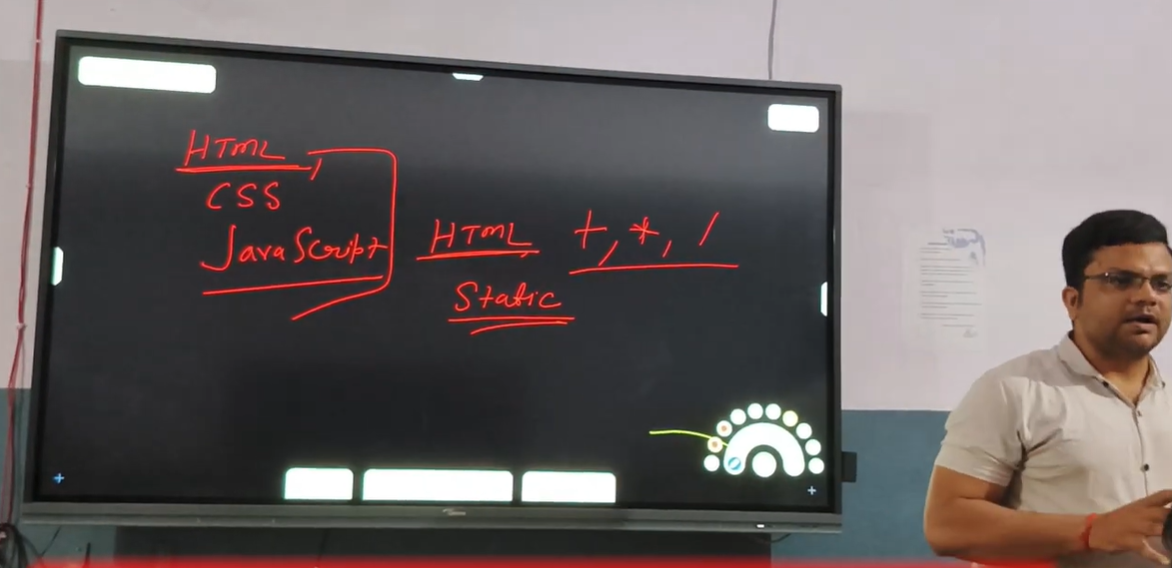 HTML,
CSS
JavaScript
HTML, +, *, /
Static